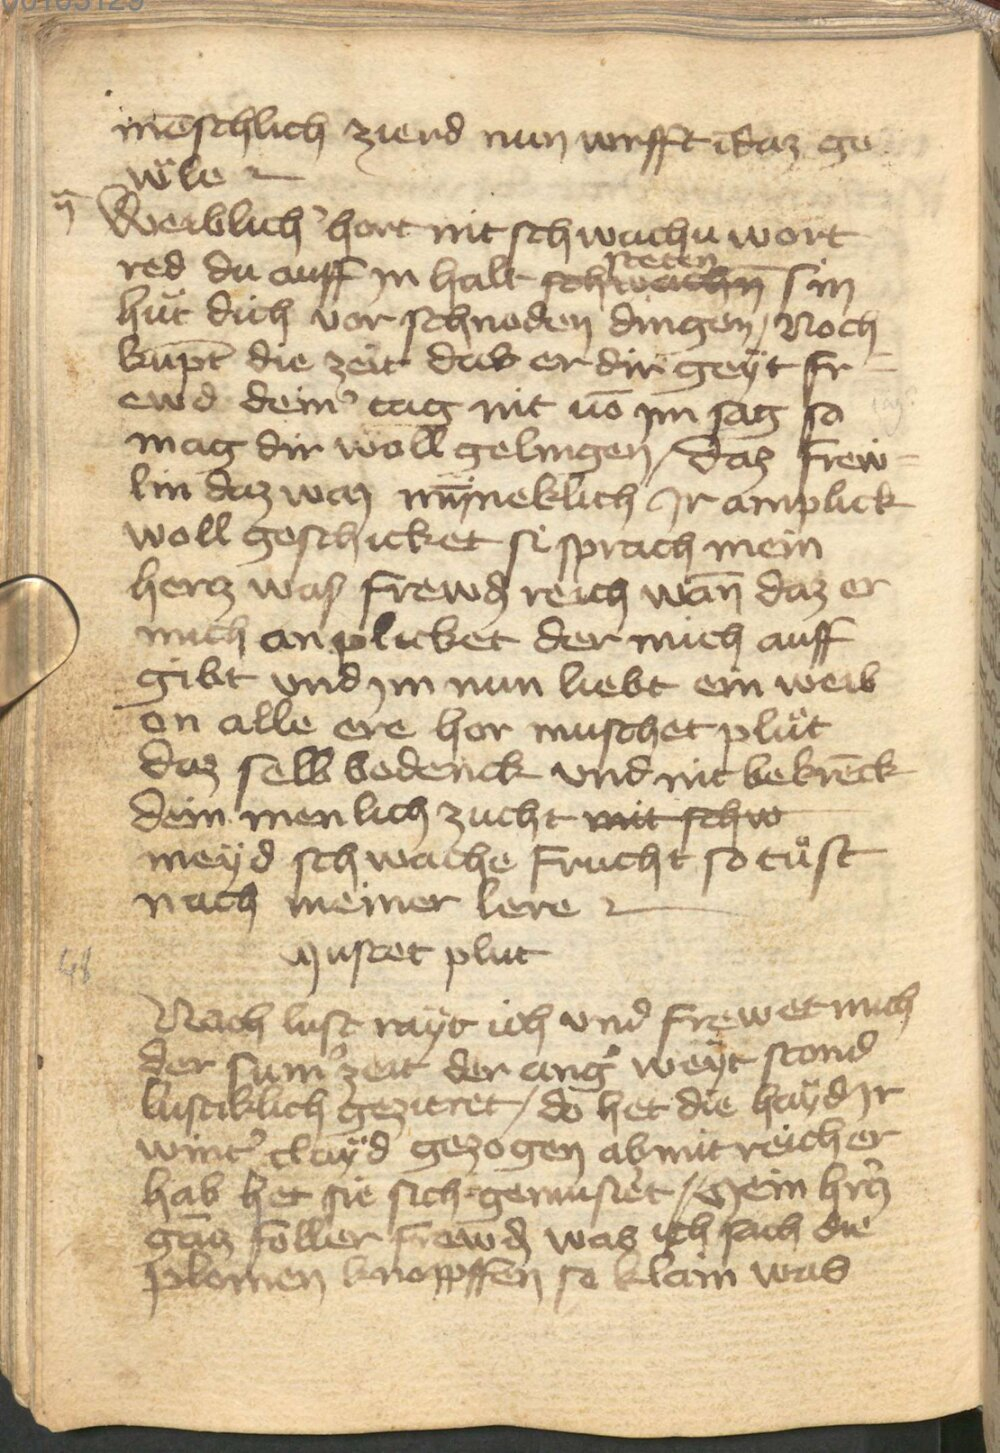 00105129
mēschlich zierd nun wirfft ī daz ge
wͤle
Weiblich hort nit schwachu wort
red du auff in halt schwachn̄ steten sin
hüt dich vor schnoden dingen / Noch
kūpt die zeit daz er dir geÿt fr=
ewd dein' tag nit vō im sag so
mag dir woll gelingen / daz frew=
lin daz waz mȳneklich Ir anplick
woll geschicket si sprach mein
hercz was frewd reich wān daz er
mich anplicket der mich auff
gibt vnd im nun liebt ein weib
on alle ere hor muschet plůt
daz selb bedenck vnd nit bekrēck
dein menlich zucht mit schw
meÿd schwache frucht so tůst
nach meiner lere
Muscet plut
48
Nach lust raÿt ich vnd frewet mich
der sum' zeit der ang' weÿt stond
lustiklich gezieret / do het die haÿd Ir
wint' claÿd gezogen ab mit reicher
hab het sie sich gemusiret / Mein hrcz
gācz foller frewd was ich sach die
plomen knopffen so klain was